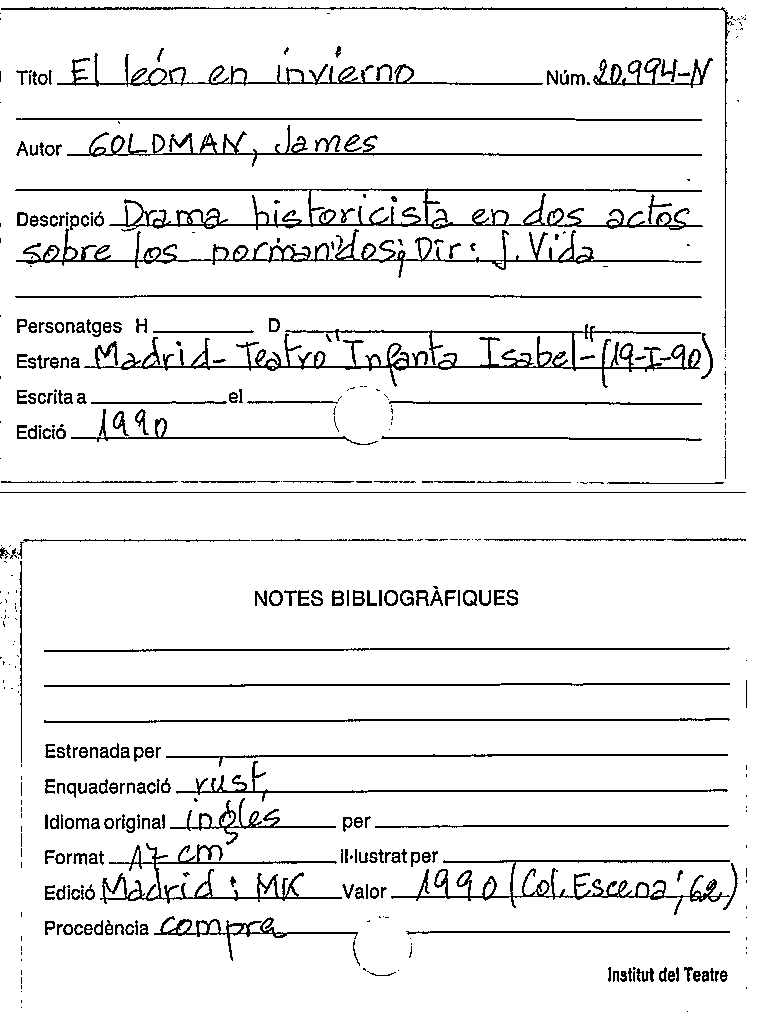 Títol El león en invierno Núm. 20.994-N
Autor GOLDMAN, James
Descripció Drama historicista en dos actos
sobre los normandos; Dir: J. Vida
Personatges H D
Estrena Madrid - Teatro "Infanta Isabel" - (19-I-90)
Escrita a el
Edició 1990
NOTES BIBLIOGRÀFIQUES
Estrenada per
Enquadernació rúst,
Idioma original inglés per
Format 17 cm il·lustrat per
Edició Madrid : MK Valor 1990 (Col. Escena; 62)
Procedència compra
Institut del Teatre